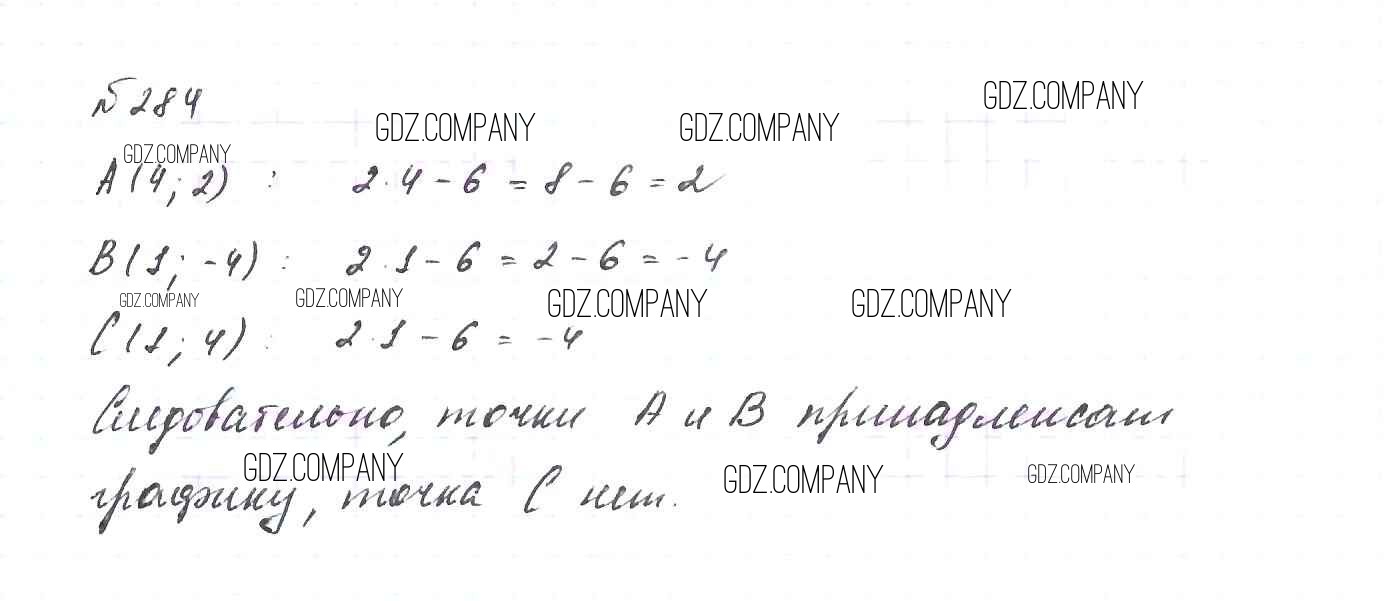 № 284
GDZ.COMPANY
GDZ.COMPANY GDZ.COMPANY
GDZ.COMPANY
A (4; 2) : 2·4 - 6 = 8 - 6 = 2
B (1; -4) : 2·1 - 6 = 2 - 6 = -4
GDZ.COMPANY GDZ.COMPANY GDZ.COMPANY GDZ.COMPANY
C (1; 4) : 2·1 - 6 = -4
Следовательно, точки A и B принадлежат
GDZ.COMPANY GDZ.COMPANY GDZ.COMPANY
графику, точка C нет.